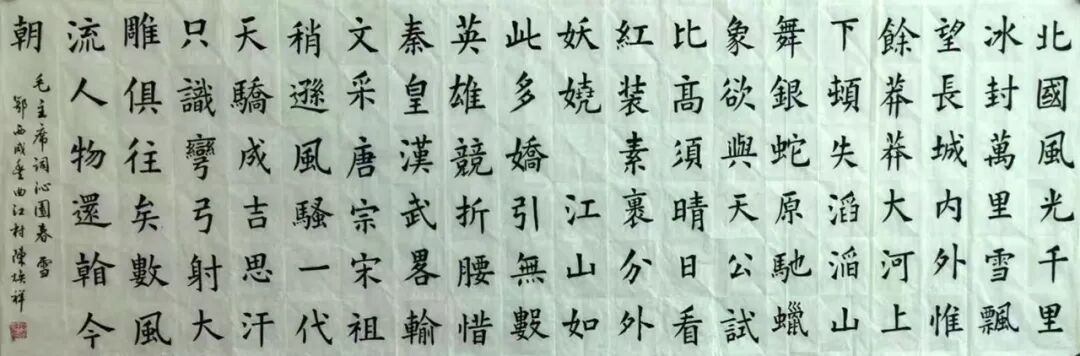 北國風光千里
冰封萬里雪飄
望長城內外惟
餘莽莽大河上
下頓失滔滔山
舞銀蛇原馳蠟
象欲與天公試
比高須晴日看
紅裝素裹分外
妖嬈 江山如
此多嬌引無數
英雄競折腰惜
秦皇漢武畧輸
文采唐宗宋祖
稍遜風騷一代
天驕成吉思汗
只識彎弓射大
雕俱往矣數風
流人物還看今
朝
毛主席詞沁園春雪
鄂西咸丰曲江村陳煥祥